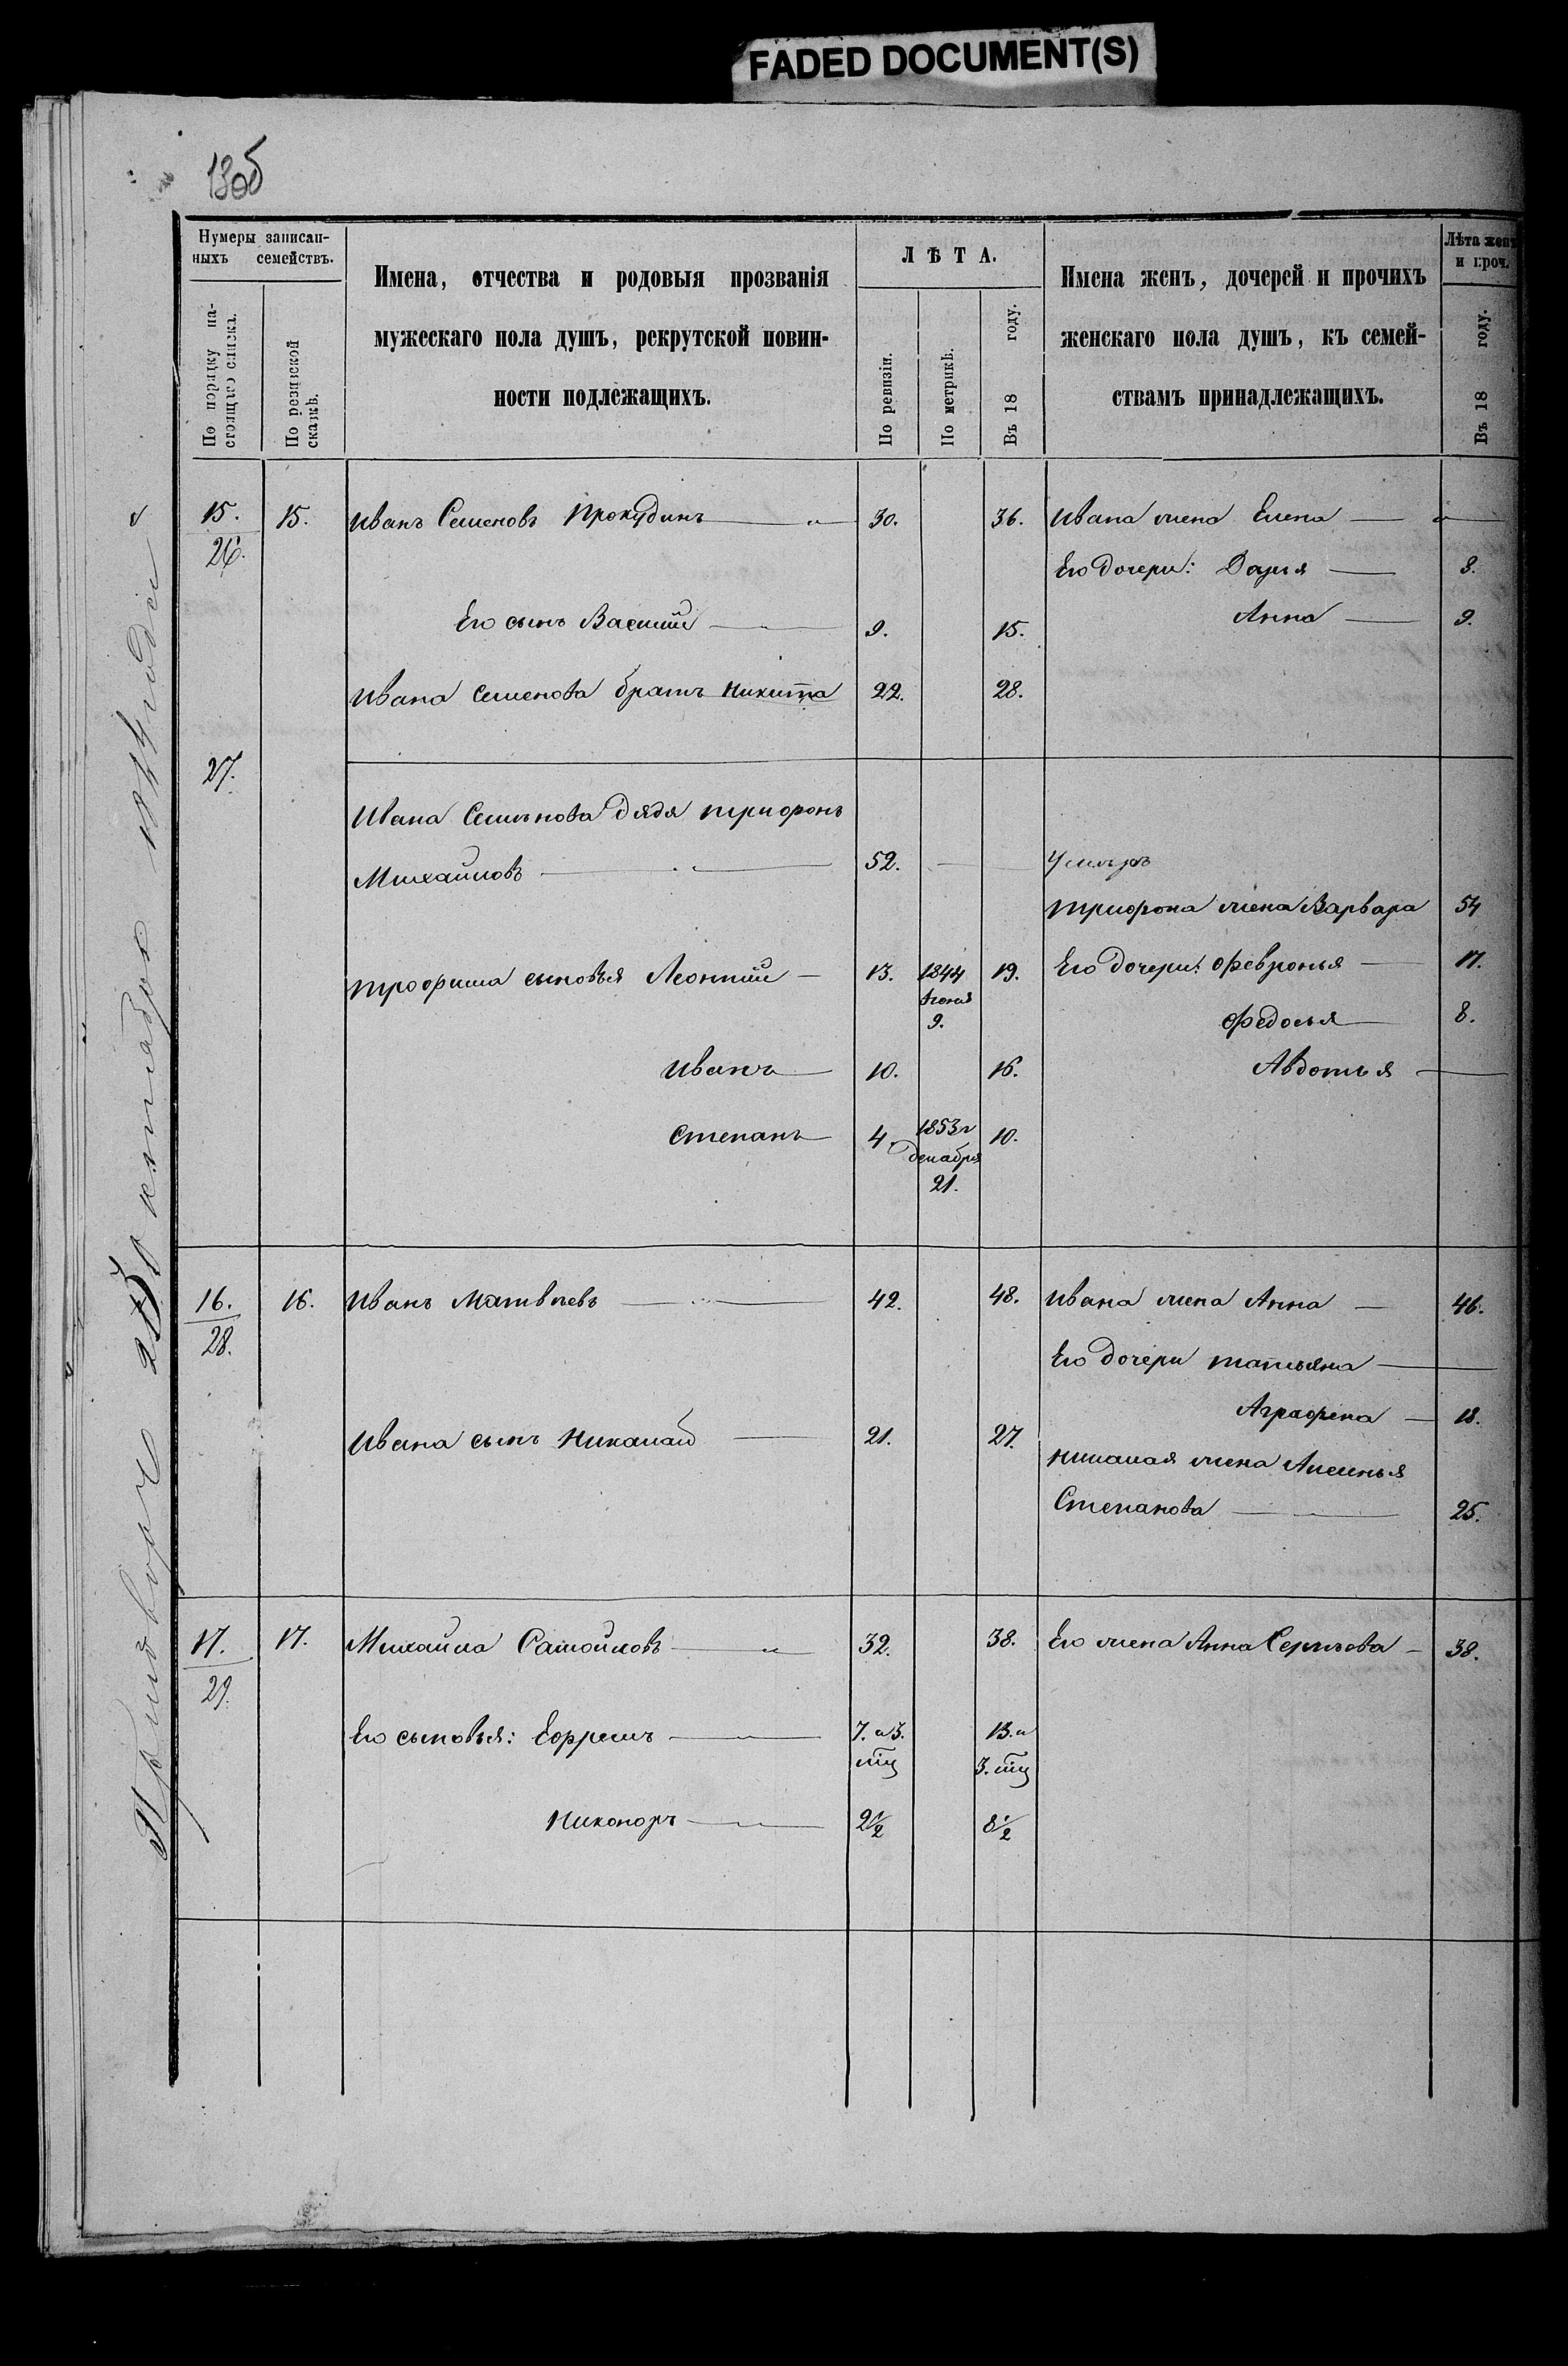 FADED DOCUMENT(S)
13об
Нумеры записан-
ныхъ семействъ.
По порядку на-
стоящаго списка.
По ревизской
сказкѣ.
Имена, отчества и родовыя прозванія
мужескаго пола душъ, рекрутской повин-
ности подлежащихъ.
ЛѢТА.
По ревизіи.
По метрикѣ.
Въ 18 году.
Имена женъ, дочерей и прочихъ
женскаго пола душъ, къ семей-
ствамъ принадлежащихъ.
Лѣта женъ
и проч.
Въ 18 году.
15. 15. Иванъ Семеновъ Прокудинъ — „ — 30. 36. Ивана жена Елена — „ —
26. Его дочери: Дарья — 8.
Его сынъ Василий — 9. 15. Анна — 9.
Ивана Семенова братъ Никита 22. 28.
27.
Ивана Семенова дядя Трифонъ
Михайловъ — 52. — Умеръ
Трифона жена Варвара 54
Трофима сыновья Леонтий — 13. 1844 19. Его дочери: Февронья — 17.
Июня
9. Федосья — 8.
Иванъ — 10. 16. Авдотья —
Степанъ — 4. 1853 г 10.
декабря
21.
16. 16. Иванъ Матвѣевъ — 42. 48. Ивана жена Анна — 46.
28. Его дочери Татьяна —
Аграфена — 18.
Ивана сынъ Николай — 21. 27. Николая жена Аксинья
Степанова — 25.
17. 17. Михайла Самойловъ — „ 32. 38. Его жена Анна Сергѣева — 38.
29.
Его сыновья: Ефремъ — „ — 7. и 3. 13. и
мѣц 3. мѣц
Никоноръ — „ — 2½ 8½